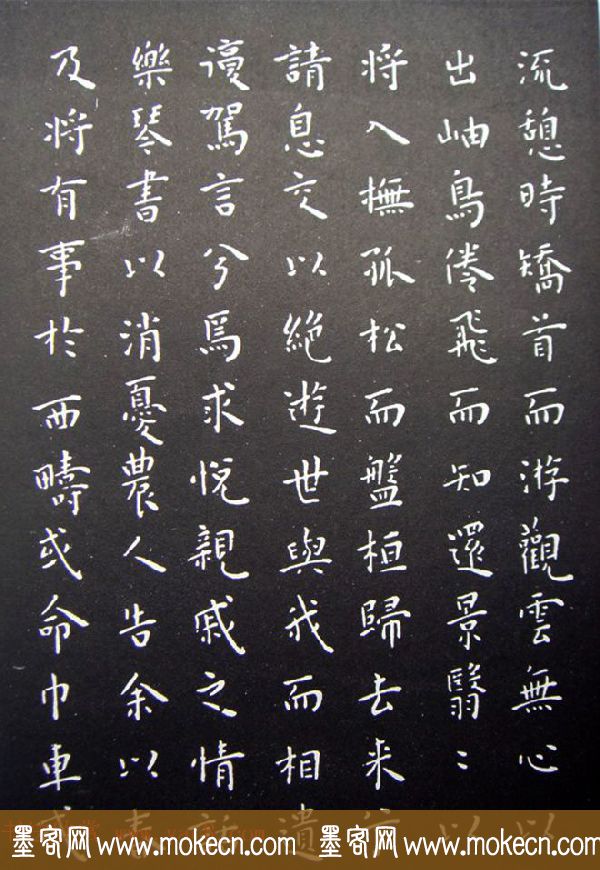 流憩時矯首而游觀雲無心以
出岫鳥倦飛而知還景翳〻以
將入撫孤松而盤桓歸去来
請息交以絕遊世與我而相遺
復駕言兮焉求悅親戚之情話
樂琴書以消憂農人告余以春
及將有事於西疇或命巾車或
墨客网 www.mokecn.com 墨客网 www.mokecn.com 墨客网 www.mokecn.com